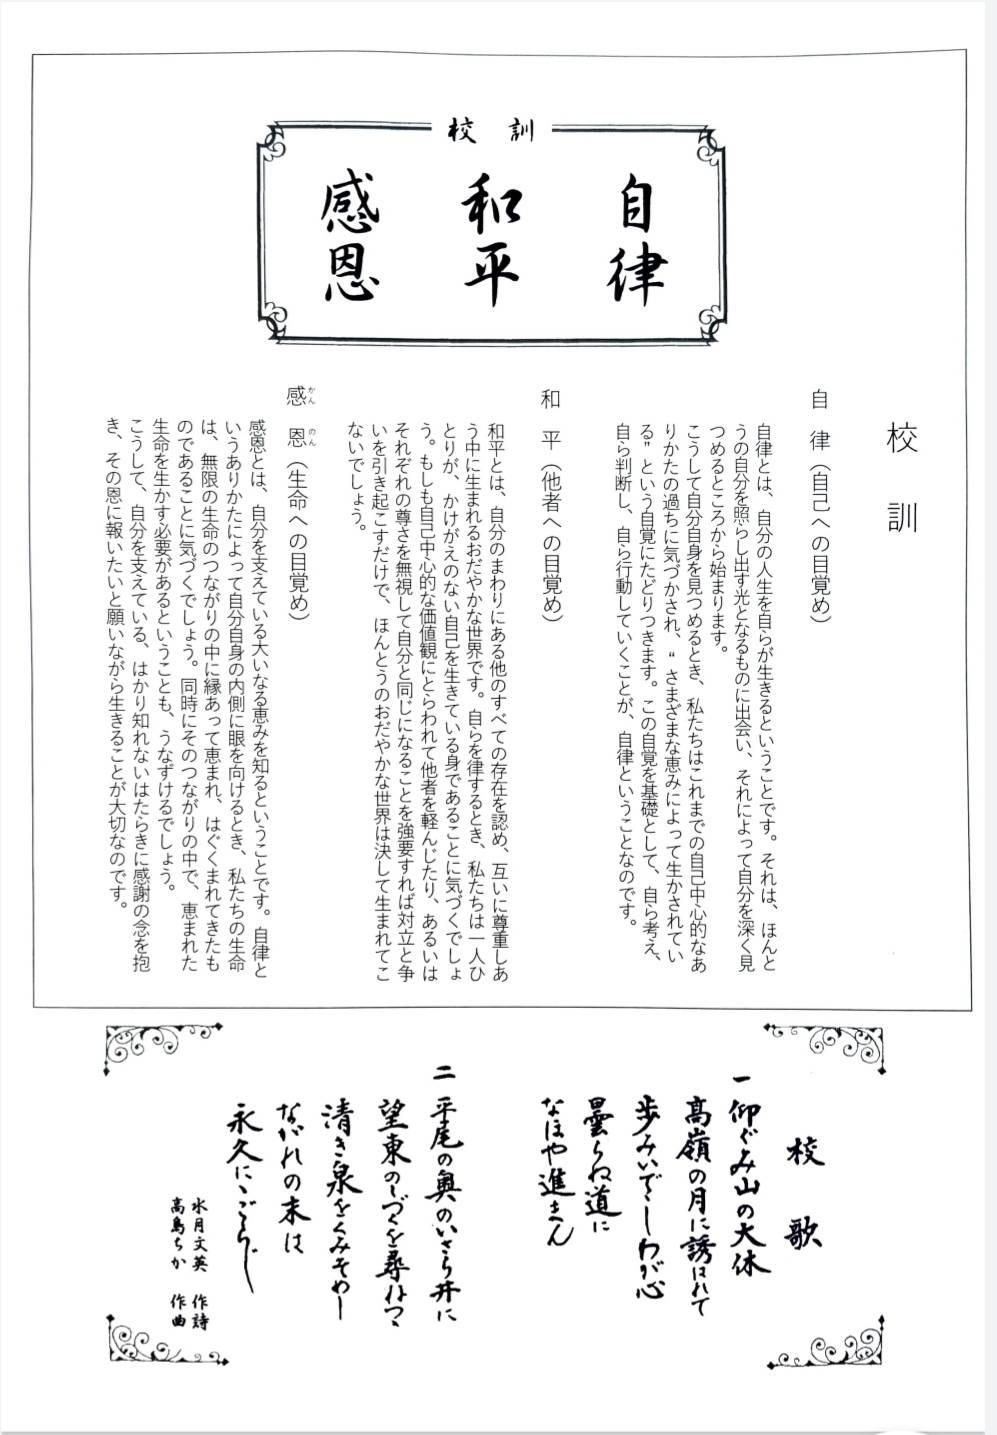 校訓
自律
和平
感恩
校訓
自律（自己への目覚め）
自律とは、自分の人生を自らが生きるということです。それは、ほんと
うの自分を照らし出す光となるものに出会い、それによって自分を深く見
つめるところから始まります。
こうして自分自身を見つめるとき、私たちはこれまでの自己中心的なあ
りかたの過ちに気づかされ、“さまざまな恵みによって生かされてい
る”という自覚にたどりつきます。この自覚を基礎として、自ら考え、
自ら判断し、自ら行動していくことが、自律ということなのです。
和平（他者への目覚め）
和平とは、自分のまわりにある他のすべての存在を認め、互いに尊重しあ
う中に生まれるおだやかな世界です。自らを律するとき、私たちは一人ひ
とりが、かけがえのない自己を生きている身であることに気づくでしょ
う。もしも自己中心的な価値観にとらわれて他者を軽んじたり、あるいは
それぞれの尊さを無視して自分と同じになることを強要すれば対立と争
いを引き起こすだけで、ほんとうのおだやかな世界は決して生まれてこ
ないでしょう。
感恩（生命への目覚め）
かんのん
感恩とは、自分を支えている大いなる恵みを知るということです。自律と
いうありかたによって自分自身の内側に眼を向けるとき、私たちの生命
は、無限の生命のつながりの中に縁あって恵まれ、はぐくまれてきたも
のであることに気づくでしょう。同時にそのつながりの中で、恵まれた
生命を生かす必要があるということも、うなずけるでしょう。
こうして、自分を支えている、はかり知れないはたらきに感謝の念を抱
き、その恩に報いたいと願いながら生きることが大切なのです。
校歌
一 仰ぐみ山の大休
高嶺の月に誘はれて
歩みいでしわが心
曇らぬ道に
なほや進まん
二 平尾の奥のいさら井に
望東のしづくを尋ねつゝ
清き泉をくみそめし
ながれの末は
永久にゝごらじ
水月文英 作詩
高島ちか 作曲